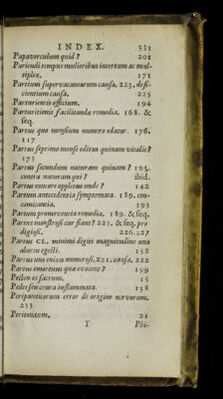 INDEX. 331
Papaverculum quid? 201
Pariendi tempus mulieribus incertum ac mul-
tiplex. 171
Partium supervacanearum causa. 223. defi-
cientium causa. 225
Parturientis officium. 194
Parturitionis facilitandæ remedia. 168. &
seq.
Partus quo mensium numero edatur. 176.
117
Partus septimo mense editus quinam vitalis?
173
Partus secundùm naturam quinam? 195.
contra naturam qui? ibid.
Partus numero oppletus unde? 142
Partum antecedentia symptomata. 189. con-
comitantia. 193
Partum promoventia remedia. 189. & seq.
Partus monstrosi cur fiant? 223. & seq. pro-
digiosi. 226. 227
Partus CL. minimi digiti magnitudine uno
abortu egesti. 158
Partus uno enixu numerosi. 221. causa. 222
Partus emortuus quæ evocent? 199
Pecten os sacrum. 15
Pedes seu crura inflammata. 138
Peripateticorum error de origine nervorum.
253
Peritonæum. 21
T Phi-